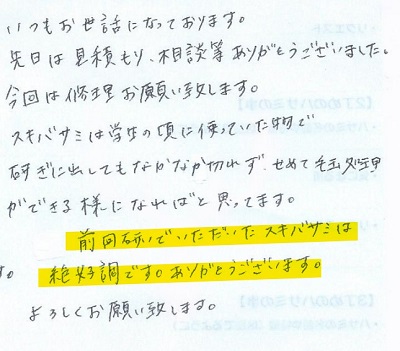 いつもお世話になっております。
先日は見積もり、相談等ありがとうございました。
今回は修理お願い致します。
スキバサミは学生の頃に使っていた物で
研ぎに出してもなかなか切れず、せめて毛処理
ができる様になればと思ってます。
前回研いでいただいたスキバサミは
す。 絶好調です。ありがとうございます。
よろしくお願い致します。